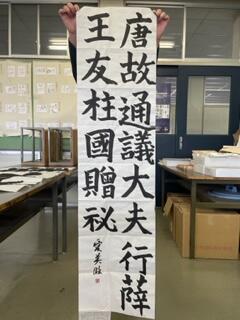 唐故通議大夫行薛
王友柱國贈祕
愛美臨